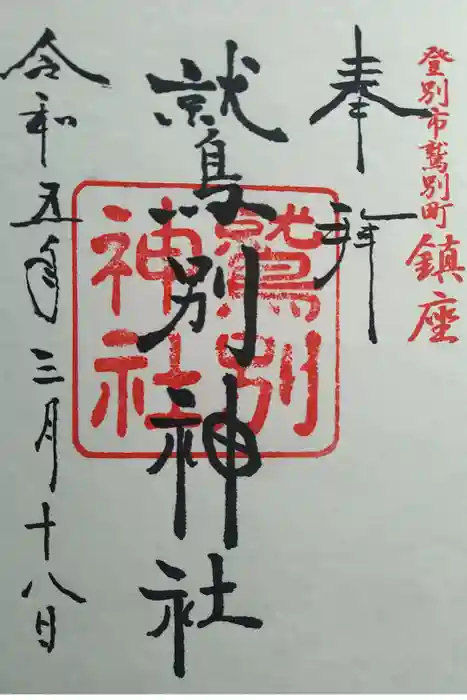 登別市鷲別町鎮座
奉拝
鷲別神社
鷲別
神社
令和五年三月十八日